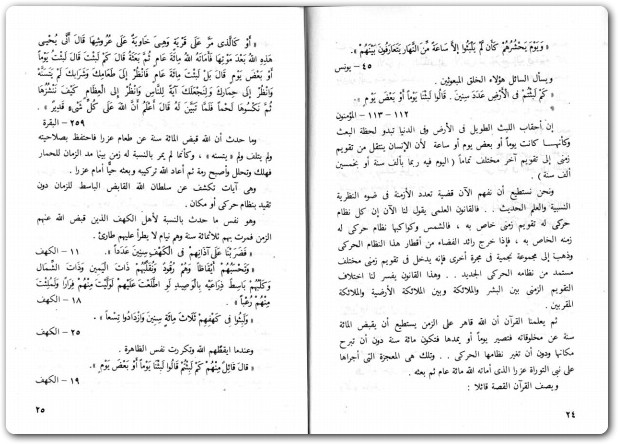 « وَيَوْمَ يَحْشُرُهُمْ كَأَن لَّمْ يَلْبَثُوا إِلاَّ سَاعَةً مِّنَ النَّهَارِ يَتَعَارَفُونَ بَيْنَهُمْ ».
٤٥ - يونس
ويسأل السائل هؤلاء الخلق المبعوثين .
« كَمْ لَبِثْتُمْ فِي الأَرْضِ عَدَدَ سِنِينَ . قَالُوا لَبِثْنَا يَوْماً أَوْ بَعْضَ يَوْمٍ ».
١١٢ - ١١٣ - المؤمنون
إن أحقاب اللبث الطويل فى الأرض وفى الدنيا تبدو لحظة البعث
وكأنهــا كانت يوماً أو بعض يوم أو ساعة لأن الإنسان ينتقل من تقويم
زمنى إلى تقويم آخر مختلف تماماً ( اليوم فيه ربما بألف سنة أو بخمسين
ألف سنة ) .
ونحن نستطيع أن نفهم الآن قضية تعدد الأزمنة فى ضوء النظرية
النسبية والعلم الحديث .. فالقانون العلمى يقول لنا الآن إن كل نظام
حركى له تقويم زمنى خاص به ، فالشمس وكواكبها نظام حركى له
زمنه الخاص به ، فإذا خرج رائد الفضاء من أقطار هذا النظام الحركى
وذهب إلى مجموعة نجمية فى مجرة أخرى فإنه يدخل فى تقويم زمنى مختلف
مستمد من نظامه الحركى الجديد .. وهذا القانون يفسر لنا اختلاف
التقويم الزمنى بين البشر والملائكة وبين الملائكة الأرضية والملائكة
المقربين .
ثم يعلمنا القرآن أن الله قاهر على الزمن يستطيع أن يقبض المائة
سنة عن مخلوقاته فتصير يوماً أو يمدها فتكون مائة سنة دون أن تبرح
مكانها ودون أن تغير نظامها الحركى .. وتلك هى المعجزة التى أجراها
على نبى التوراة عزرا الذى أماته الله مائة عام ثم بعثه .
ويصف القرآن القصة قائلا :
٢٤
« أَوْ كَالَّذِى مَرَّ عَلَى قَرْيَةٍ وَهِىَ خَاوِيَةٌ عَلَى عُرُوشِهَا قَالَ أَنَّى يُحْيِى
هَذِهِ اللهُ بَعْدَ مَوْتِهَا فَأَمَاتَهُ اللهُ مِائَةَ عَامٍ ثُمَّ بَعَثَهُ قَالَ كَمْ لَبِثْتَ قَالَ لَبِثْتُ يَوْماً
أَوْ بَعْضَ يَوْمٍ قَالَ بَلْ لَبِثْتَ مِائَةَ عَامٍ فَانْظُرْ إِلَى طَعَامِكَ وَشَرَابِكَ لَمْ يَتَسَنَّهْ
وَانْظُرْ إِلَى حِمَارِكَ وَلِنَجْعَلَكَ آيَةً لِلنَّاسِ وَانْظُرْ إِلَى الْعِظَامِ كَيْفَ نُنْشِزُهَا
ثُمَّ نَكْسُوهَا لَحْماً فَلَمَّا تَبَيَّنَ لَهُ قَالَ أَعْلَمُ أَنَّ اللهَ عَلَى كُلِّ شَىْءٍ قَدِيرٌ » .
٢٥٩ - البقرة
وما حدث أن الله قبض المائة سنة عن طعام عزرا فاحتفظ بصلاحيته
ولم يتلف ولم « يتسنه » ، وكأنما لم يمر بالنسبة له زمن بينا مد الزمان للحمار
فهلك وتحلل وأصبح رمة ثم أعاد الله تركيبه وبعثه حيًّا أمام عزرا .
وهى آيات تكشف عن سلطان الله القابض الباسط للزمان دون
تقيد بنظام حركى أو مكان .
وهو نفس ما حدث بالنسبة لأهل الكهف الذين قبض الله عنهم
الزمن فمرت بهم ثلاثمائة سنة وهم نيام لا يطرأ عليهم طارئ .
« فَضَرَبْنَا عَلَى آذَانِهِمْ فِى الْكَهْفِ سِنِينَ عَدَداً ». ١١ - الكهف
« وَتَحْسَبُهُمْ أَيْقَاظاً وَهُمْ رُقُودٌ وَنُقَلِّبُهُمْ ذَاتَ الْيَمِينِ وَذَاتَ الشِّمَالِ
وَكَلْبُهُمْ بَاسِطٌ ذِرَاعَيْهِ بِالْوَصِيدِ لَوِ اطَّلَعْتَ عَلَيْهِمْ لَوَلَّيْتَ مِنْهُمْ فِرَارًا وَلَمُلِئْتَ
مِنْهُمْ رُعْباً » . ١٨ - الكهف
« وَلَبِثُوا فِى كَهْفِهِمْ ثَلَاثَ مِائَةٍ سِنِينَ وَازْدَادُوا تِسْعاً » .
٢٥ - الكهف
وعندما ايقظهم الله وتكررت نفس الظاهرة .
« قَالَ قَائِلٌ مِنْهُمْ كَمْ لَبِثْتُمْ قَالُوا لَبِثْنَا يَوْماً أَوْ بَعْضَ يَوْمٍ ».
١٩ - الكهف
٢٥